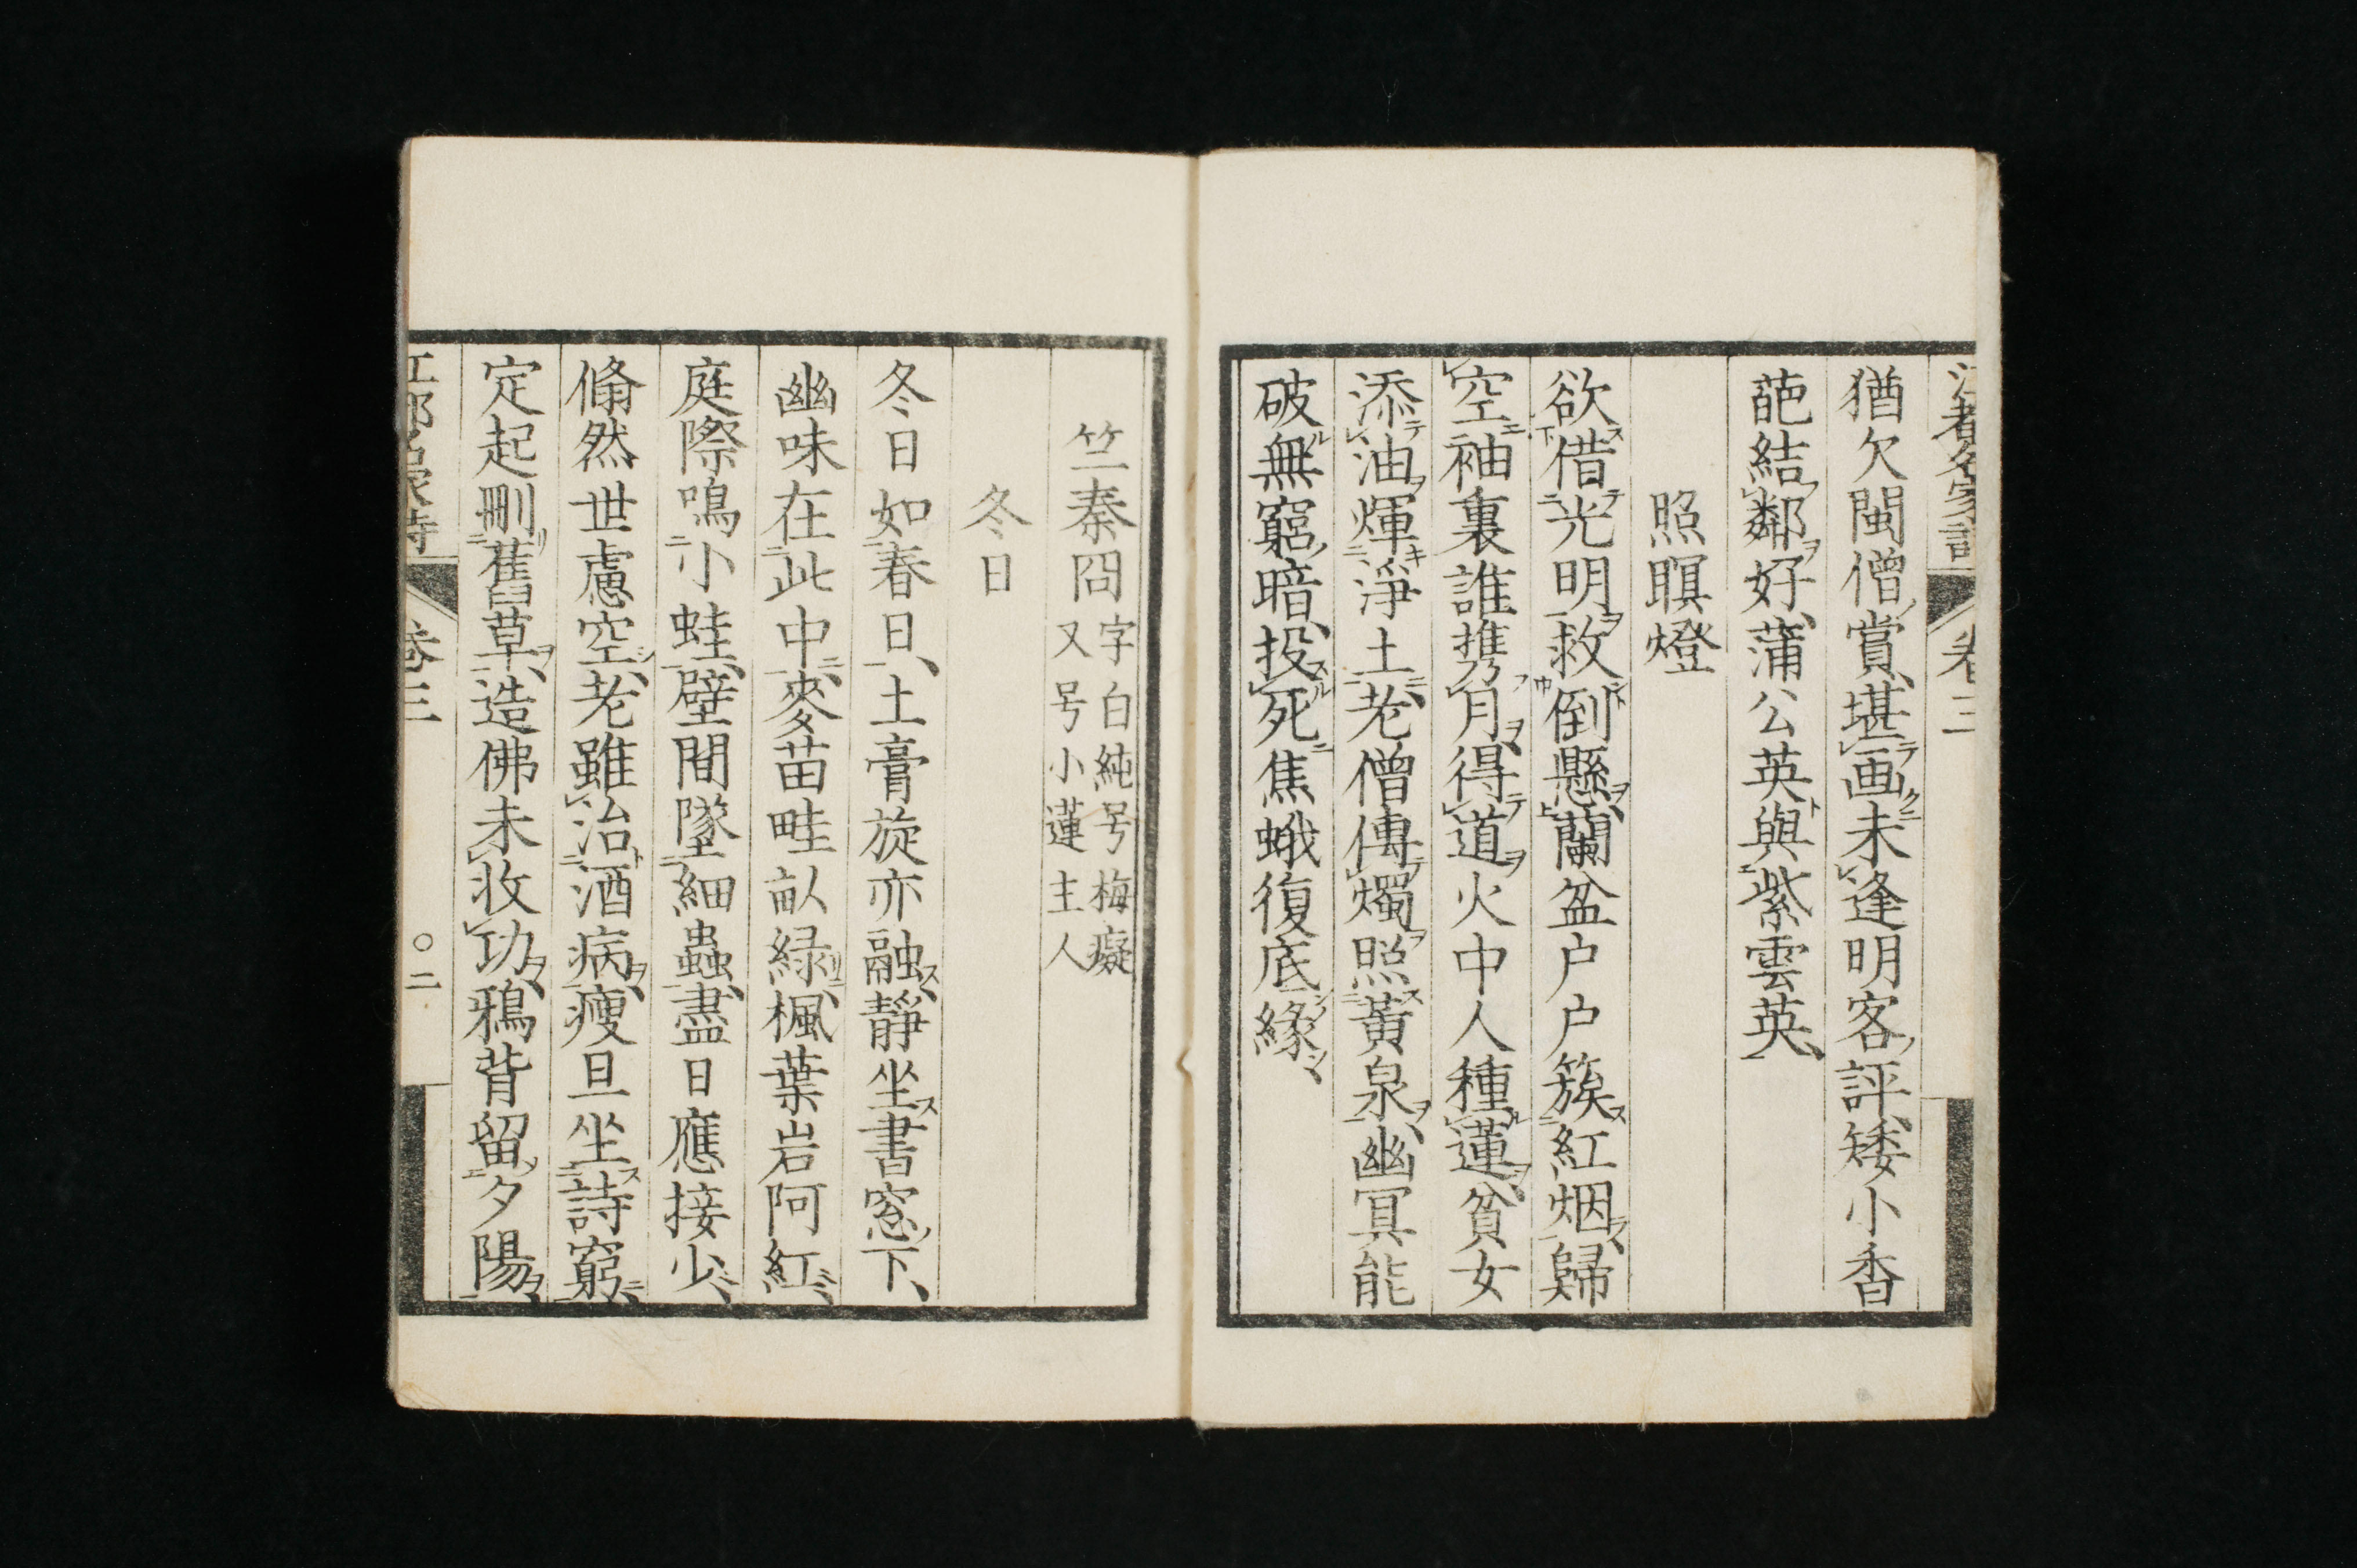 猶欠閩僧賞、堪画未逢明客評、矮小香
葩結鄰好、蒲公英與紫雲英、
照暝燈
欲借光明救倒懸、蘭盆户户簇紅烟、歸
空袖裏誰携月、得道火中人種蓮、貧女
添油煇淨土、老僧傳燭照黄泉、幽冥能
破無窮暗、投死焦蛾復底緣、
竺秦冏 字白純号梅癡
又号小蓮主人
冬日
冬日如春日、土膏旋亦融、靜坐書窓下、
幽味在此中、麥苗畦畝緑、楓葉岩阿紅、
庭際鳴小蛙、壁間墜細蟲、盡日應接少、
翛然世慮空、老雖治酒病、瘦旦坐詩窮、
定起刪舊草、造佛未收功、鴉背留夕陽、
卷三
〇二